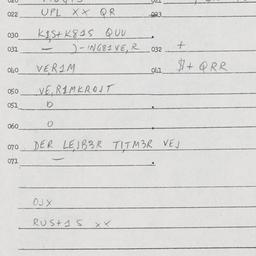 022 UPL XX QR 023
030 K1S+K815 QUU
031 — )-ING81VE,R 032 +
040 VER1M 041 $+ QRR
050 VE,R1MKROJT
051 O
060 O
070 DER LEJB3R TITM3R VEJ
071 —
OJX
RUS+15 XX